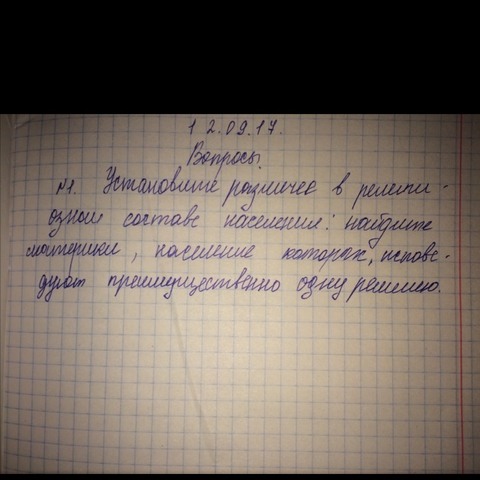 12.09.17.
Вопросы.
№1. Установите различие в религи-
озном составе населения: найдите
материки, население которых, испове-
дуют преимущественно одну религию.